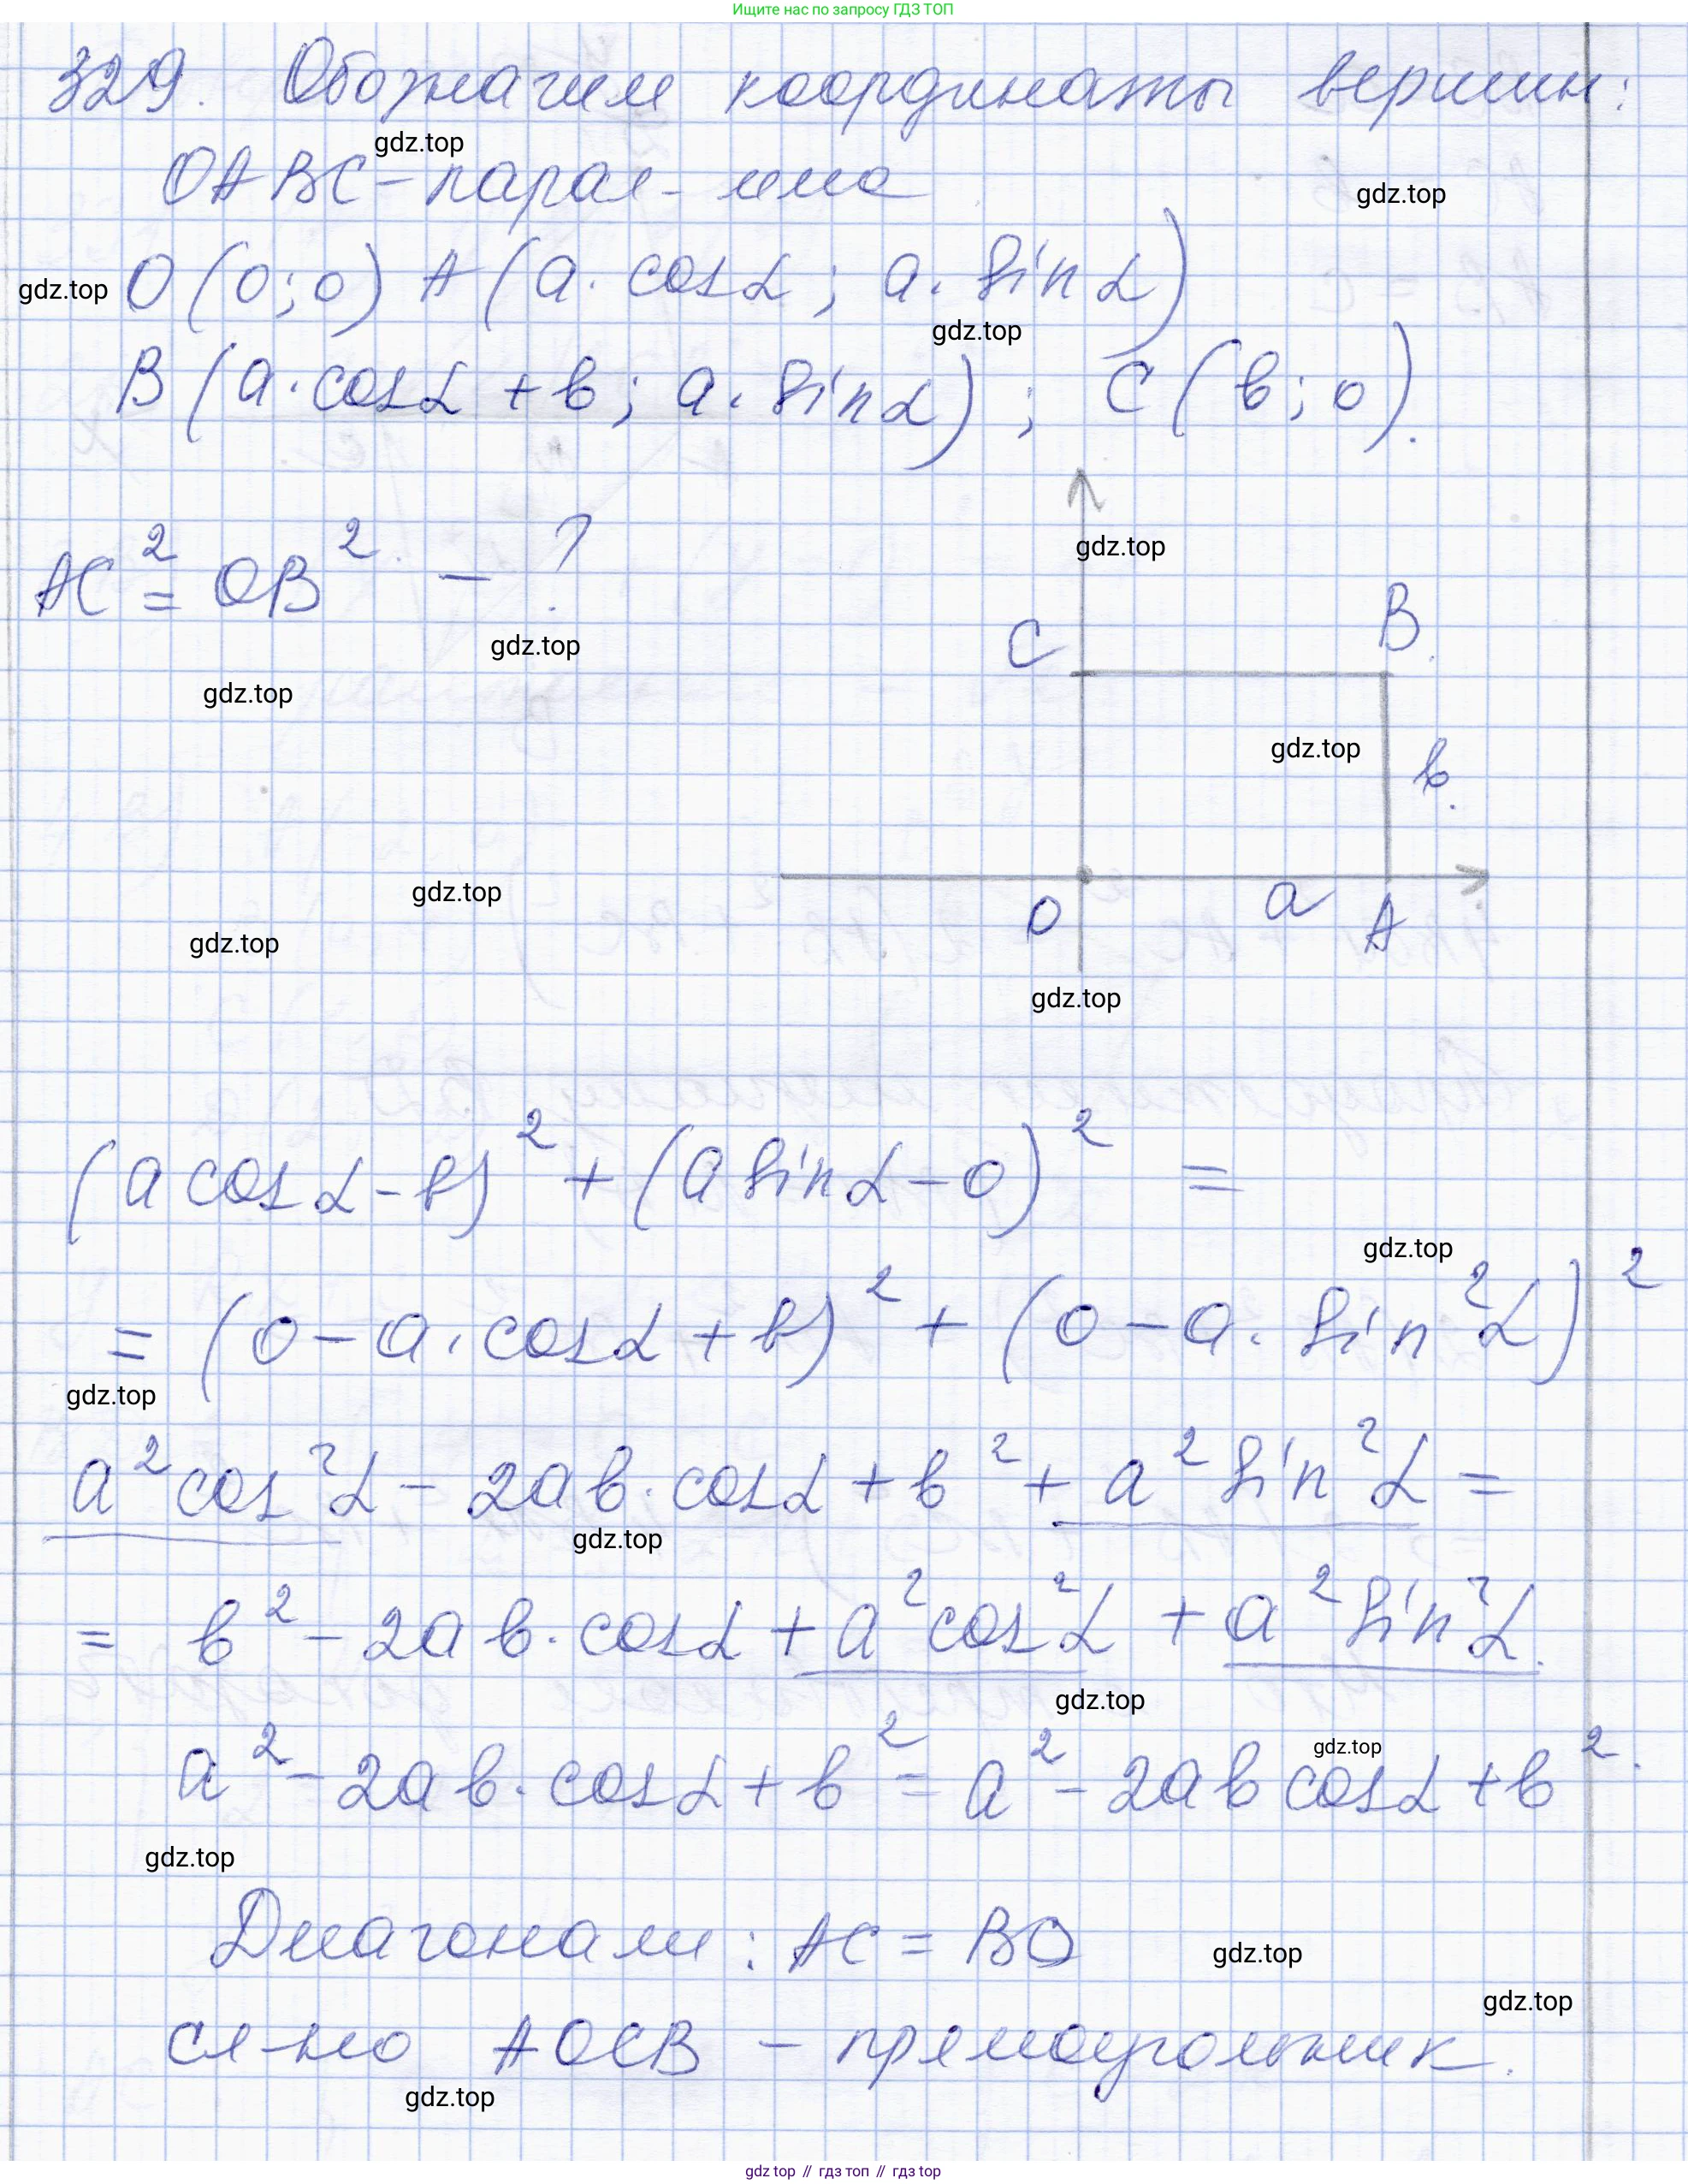 Ищите нас по запросу ГДЗ ТОП
329. Обозначим координаты вершин:
gdz.top
OABC - парал-мма
gdz.top
gdz.top
O(0;0) A(a·cosα; a·sinα)
gdz.top
B(a·cosα + b; a·sinα); C(b;0).
AC² = OB² - ?
gdz.top
C B
gdz.top
gdz.top
gdz.top
b
gdz.top
O a A
gdz.top
gdz.top
(a cosα - b)² + (a sinα - 0)² =
gdz.top
= (0 - a·cosα + b)² + (0 - a·sin²α)²
gdz.top
a² cos²α - 2ab·cosα + b² + a² sin²α =
gdz.top
= b² - 2ab·cosα + a² cos²α + a² sin²α.
gdz.top
gdz.top
a² - 2ab·cosα + b² = a² - 2ab cosα + b².
gdz.top
Диагонали: AC = BO
gdz.top
gdz.top
сл-но AOCB - прямоугольник.
gdz.top
gdz top // гдз топ // гдз top